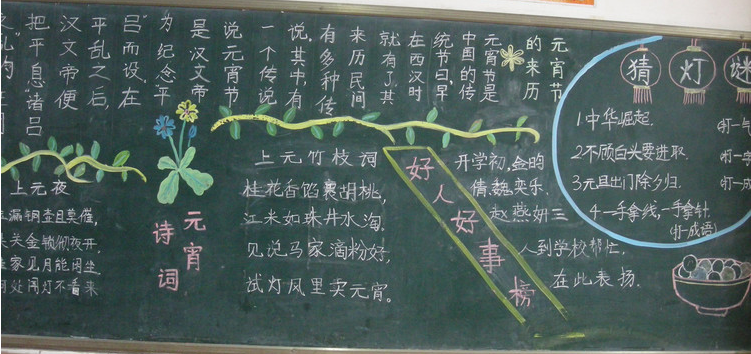 元宵节
的来历
元宵节是
中国的传
统节日,早
在西汉时
就有了,其
来历民间
有多种传
说,其中,有
一个传说
说元宵节
是汉文帝
为纪念平
吕"而设,在
平乱之后,
汉文帝便
把平息"诸吕
乱"的
猜灯谜
1中华崛起. (打一
2不顾白头要进取. (打一
3元旦出门除夕归. (打一
4.一手拿线,一手拿针.
(打成语)
元宵
诗词
上元竹枝词
桂花香馅裹胡桃,
江米如珠井水淘.
见说马家滴粉好,
试灯风里卖元宵.
上元夜
漏铜壶且莫催,
关金锁彻夜开.
家见月能闲坐
何处闻灯不看来
好人好事榜
开学初,金昀
倩,魏奕乐,
赵燕妍三
人到学校帮忙,
在此表扬.